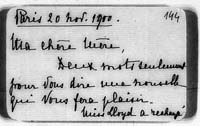 Paris 20 nov. 1900.
144
Ma chère Mère,
Deux mots seulement
pour vous dire une nouvelle
qui vous fera plaisir.
Miss Lloyd a